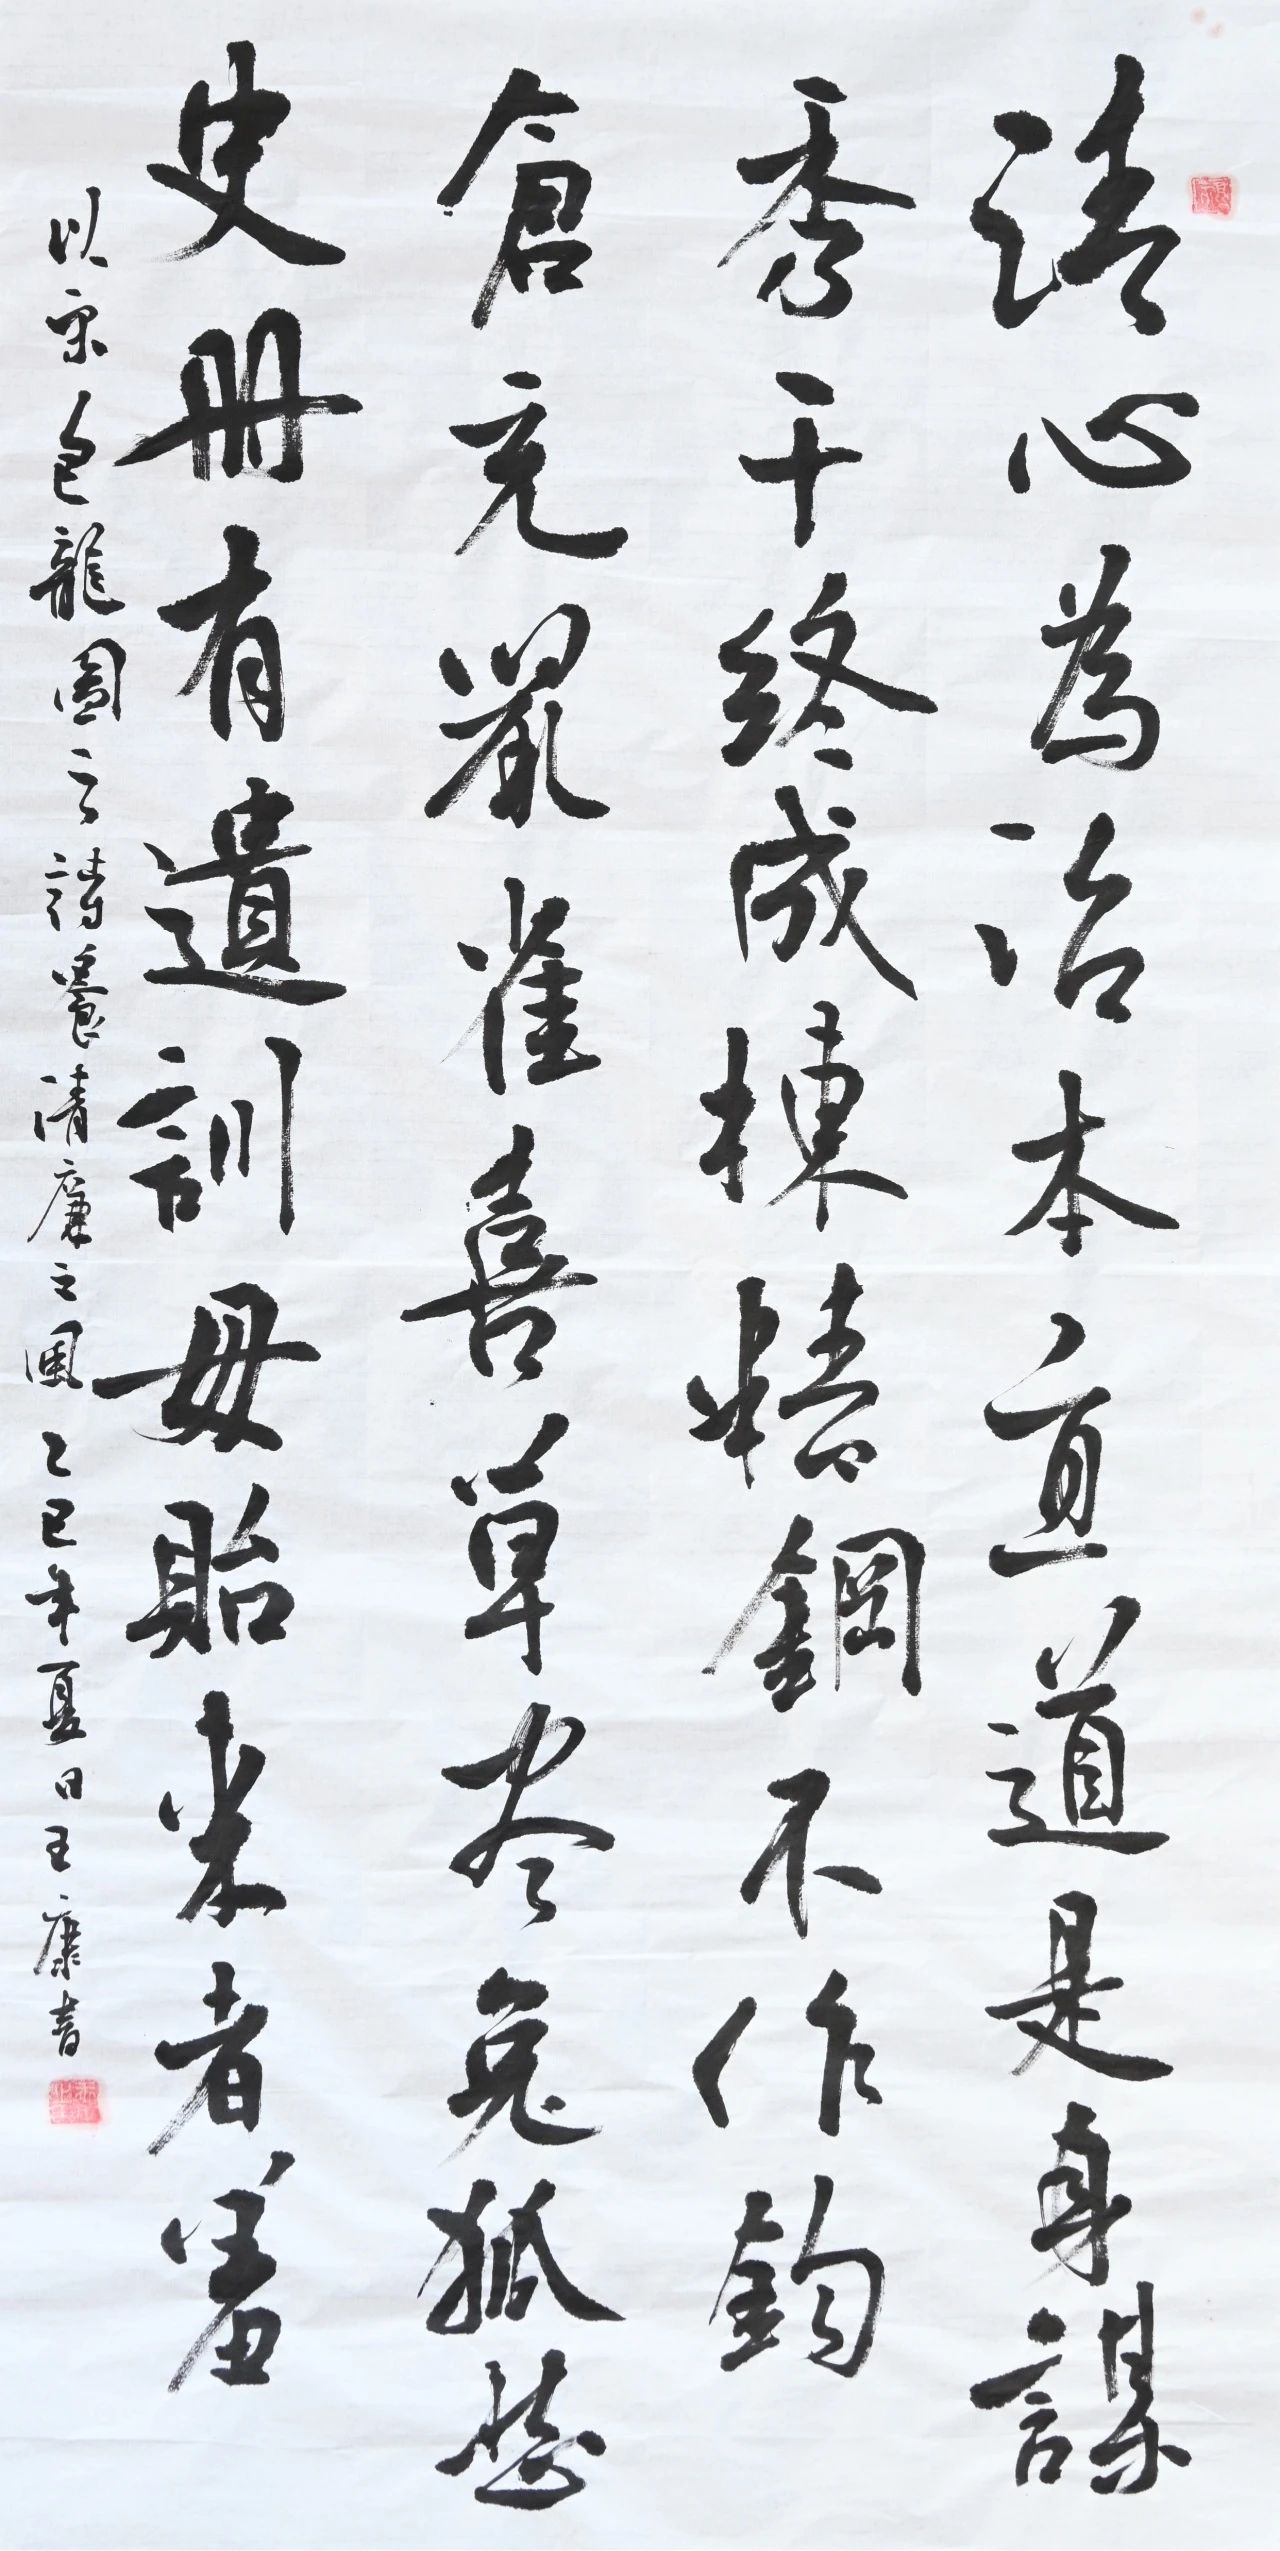 清心為治本直道是身謀
秀干終成棟精鋼不作鈎
倉充鼠雀喜草尽兔狐愁
史冊有遺訓毋貽来者羞
以宋包龍圖之詩養清廉之風乙巳年夏日王康書